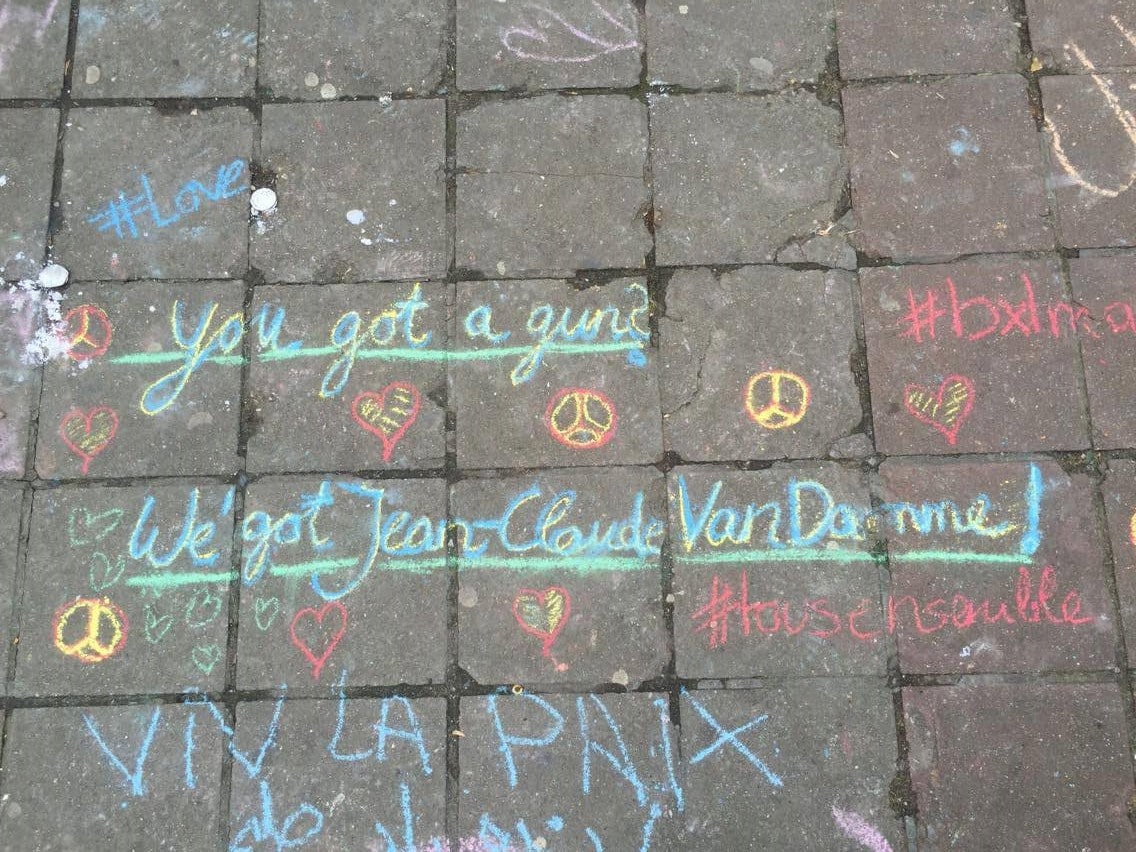 #Love
You got a gun?
#bxlma
We' got Jean-Claude Van Damme!
#tousensauble
VIV LA PAIX